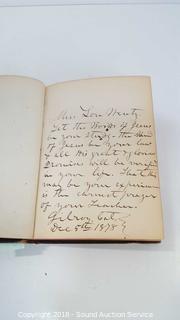 Miss Lou Wentz
Let the Words of Jesus
be your study - the Mind
of Jesus be your law
& all His great & glorious
Promises will be
in your life. That this
may be your experience
is the earnest prayer
of your Teacher.
Gilroy, Cal.
Dec 5th 1878
Copyright 2018 - Sound Auction Service